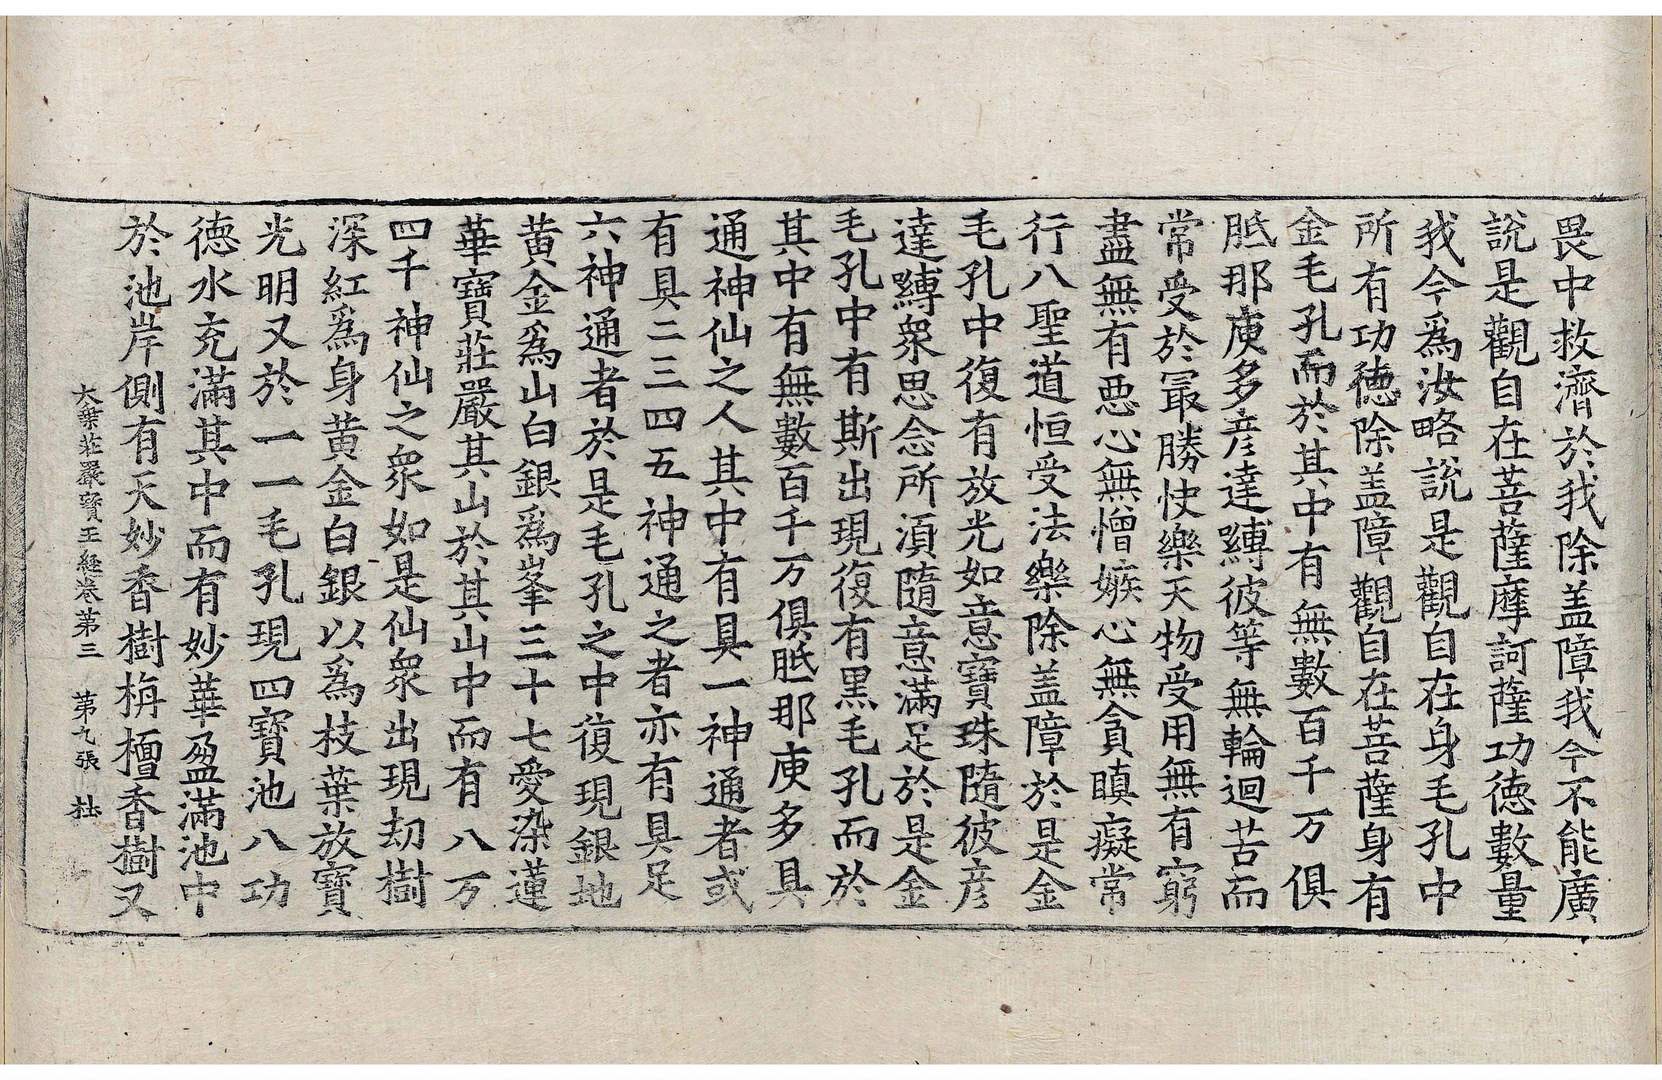 畏中救濟於我除盖障我今不能廣
說是觀自在菩薩摩訶薩功德數量
我今爲汝略說是觀自在身毛孔中
所有功德除盖障觀自在菩薩身有
金毛孔而於其中有無數百千万俱
胝那庾多彦達嚩彼等無輪迴苦而
常受於冣勝快樂天物受用無有窮
盡無有惡心無憎嫉心無貪瞋癡常
行八聖道恒受法樂除盖障於是金
毛孔中復有放光如意寶珠隨彼彦
達嚩衆思念所須隨意滿足於是金
毛孔中有斯出現復有黑毛孔而於
其中有無數百千万俱胝那庾多具
通神仙之人其中有具一神通者或
有具二三四五神通之者亦有具足
六神通者於是毛孔之中復現銀地
黄金爲山白銀爲峯三十七愛染蓮
華寶莊嚴其山於其山中而有八万
四千神仙之衆如是仙衆出現刧樹
深紅爲身黄金白銀以爲枝葉放寶
光明又於一一毛孔現四寶池八功
德水充滿其中而有妙華盈滿池中
於池岸側有天妙香樹栴檀香樹又
大乗莊嚴寶王經卷第三 第九張